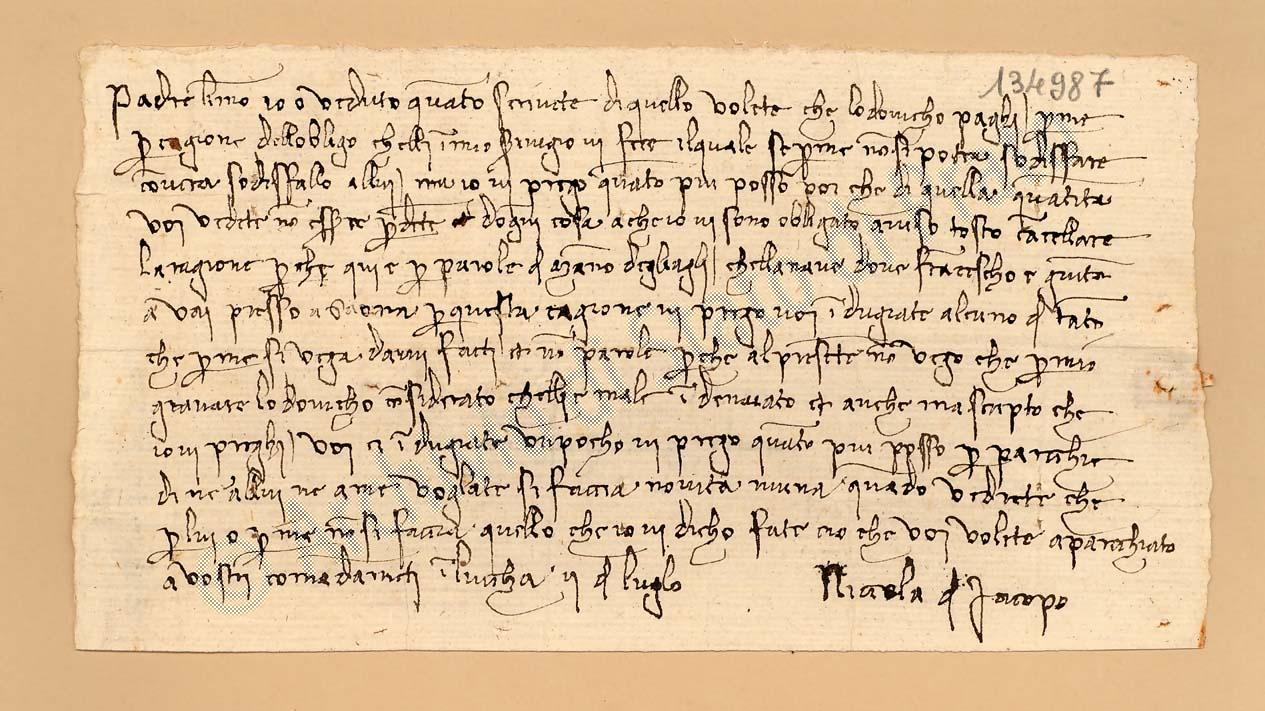 134987
Padre k.mo io o veduto quāto scrivete di quello volete che lodovicho paghi p me
p cagione dellobligo chelli ī mio srvigio vi fece il quale se p me nō si potra sodisffare
cōvera sodisffallo allui ma io vi prego quāto piu posso poi che di quella quātita
voi vedete nō essere p dogni cosa a che io vi sono obligato tosto cācellare
la ragione p che qui e p parole d māno deglagli chella nave dove frācescho e
a vai presso a Saona p questa cagione vi prego voi īdugiate alcuno d tāto
che p me si vega darvi fatti et nō parole p che al presēte nō vego che p mio
gravare lodovicho cōsiderato chelli e male ī denarato et anche ma scripto che
io vi preghi voi ci īdugiate un pocho vi prego quāto piu posso p parechie
di ne allui ne a me voglate si faccia novita niuna quādo vedrete che
p lui o p me nō si faccia quello che io vi dicho fate cio che voi volete aparechiato
a vostri comādamēti ī luccha vi d luglo
Nicola d Jacopo